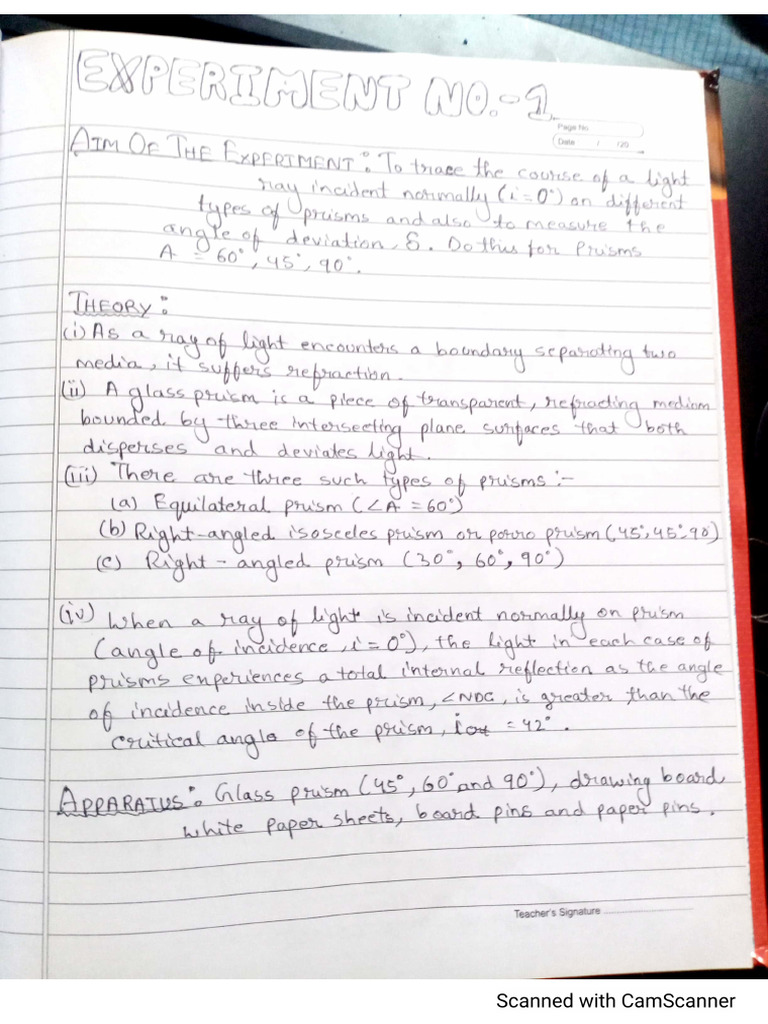 EXPERIMENT NO.-1
Page No.
Date / /20
AIM OF THE EXPERIMENT: To trace the course of a light
ray incident normally (i=0°) on different
types of prisms and also to measure the
angle of deviation, δ. Do this for Prisms
A = 60°, 45°, 90°.
THEORY:
(i) As a ray of light encounters a boundary separating two
media, it suffers refraction.
(ii) A glass prism is a piece of transparent, refracting medium
bounded by three intersecting plane surfaces that both
disperses and deviates light.
(iii) There are three such types of prisms :-
(a) Equilateral prism (∠A = 60°)
(b) Right-angled isosceles prism or porro prism (45°, 45°, 90°)
(c) Right-angled prism (30°, 60°, 90°)
(iv) When a ray of light is incident normally on prism
(angle of incidence, i = 0°), the light in each case of
prisms experiences a total internal reflection as the angle
of incidence inside the prism, ∠NDC, is greater than the
critical angle of the prism, = 42°.
APPARATUS: Glass prism (45°, 60° and 90°), drawing board,
white paper sheets, board pins and paper pins.
Teacher's Signature
Scanned with CamScanner